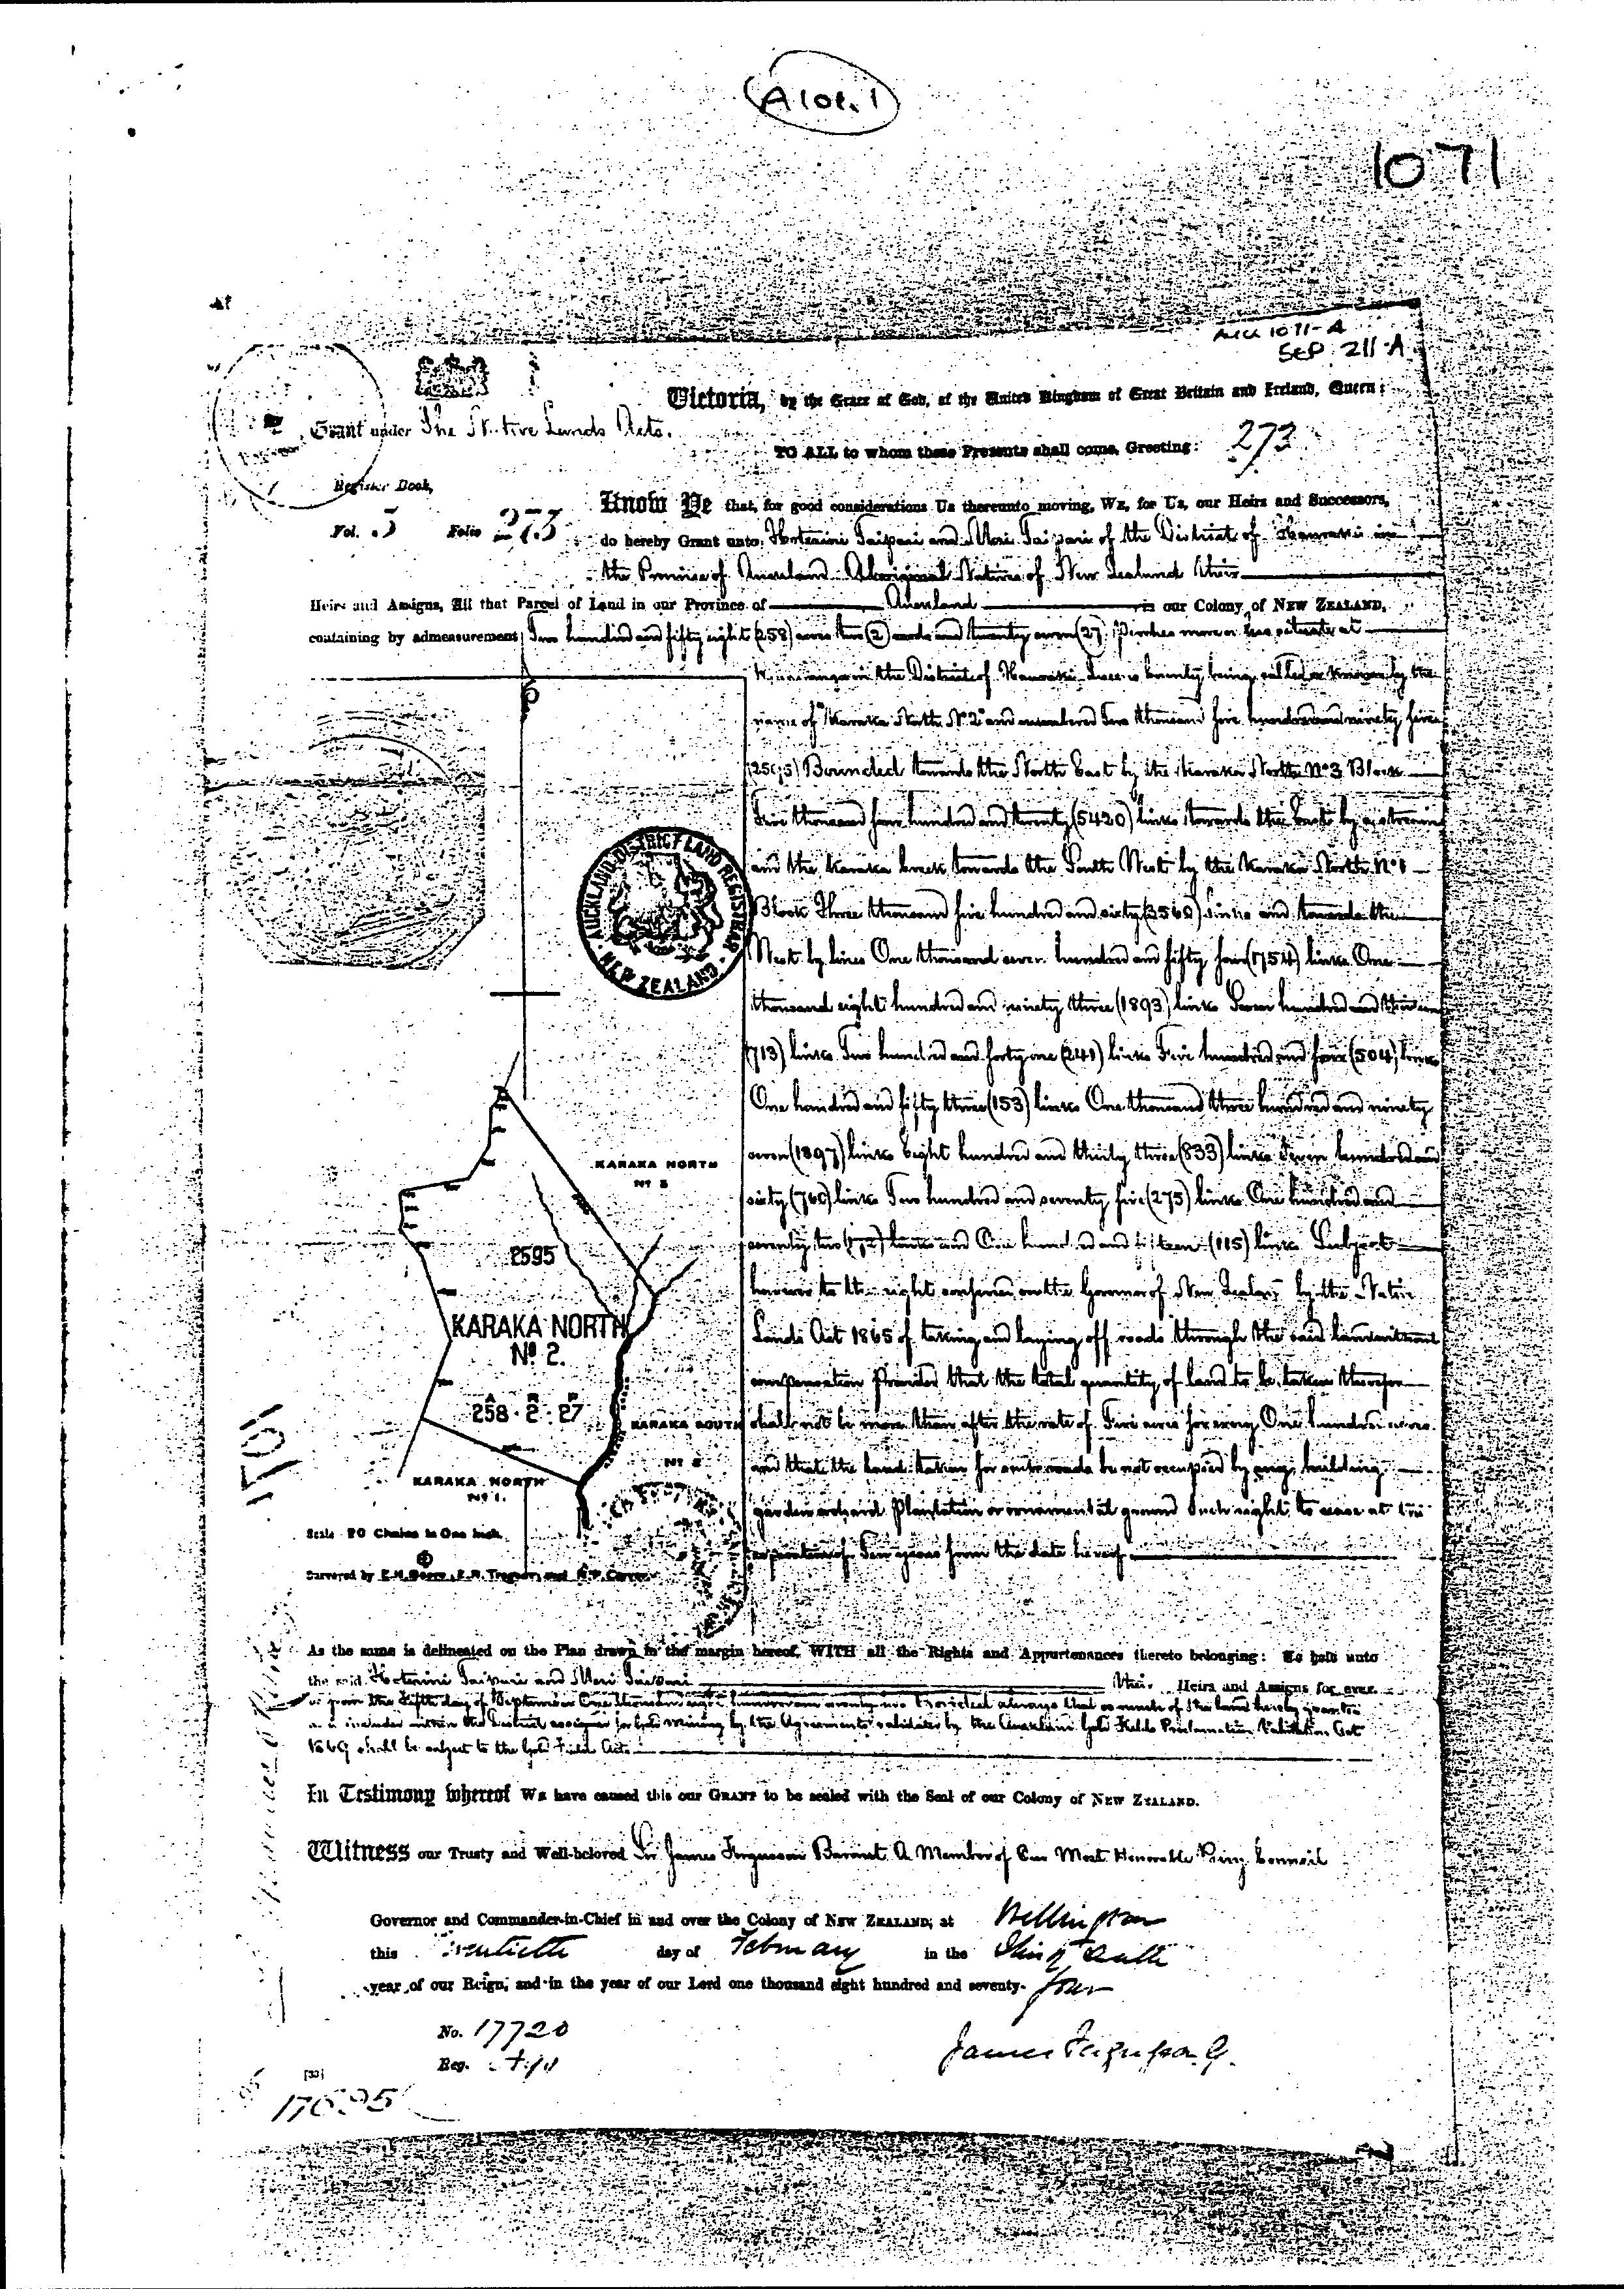 A101.1
1071
SEP 211 A
Victoria, by the Grace of God, of the United Kingdom of Great Britain and Ireland, Queen:
Grant under The Native Lands Acts.
TO ALL to whom these Presents shall come, Greeting:
273
Register Book,
Vol. 5 Folio 273
Know Ye that, for good considerations Us thereunto moving, WE, for Us, our Heirs and Successors,
do hereby Grant unto Hoterini Taipari and Meri Taipari of the District of Hauraki in
the Province of Auckland Aboriginal Natives of New Zealand their
Heirs and Assigns, All that Parcel of Land in our Province of Auckland in our Colony of NEW ZEALAND,
containing by admeasurement Two hundred and fifty eight (258) acres two (2) roods and twenty seven (27) Perches more or less situate at
in the District of Hauraki County being called or known by the
name of "Karaka North No 2" and numbered Two thousand five hundred and ninety five
(2595) Bounded towards the North East by the Karaka North No 3 Block
Five thousand four hundred and twenty (5420) links towards the East by a stream
and the Karaka Creek towards the South West by the Karaka North No 1
Block Three thousand five hundred and sixty (3560) links and towards the
West by lines One thousand seven hundred and fifty four (1754) links One
thousand eight hundred and ninety three (1893) links Seven hundred and thirteen
(713) links Two hundred and forty one (241) links Five hundred and four (504) links
One hundred and fifty three (153) links One thousand three hundred and ninety
seven (1397) links Eight hundred and thirty three (833) links Seven hundred and
sixty (760) links Two hundred and seventy five (275) links One hundred and
seventy two (172) links and One hundred and fifteen (115) links Subject
however to the right conferred on the Governor of New Zealand by the Native
Lands Act 1865 of taking and laying off roads through the said land without
compensation Provided that the total quantity of land to be taken therefor
shall not be more than after the rate of Five acres for every One hundred acres
and that the land taken for such roads be not occupied by any building
garden orchard Plantation or ornamental ground Such right to cease at the
expiration of Ten years from the date hereof
AUCKLAND DISTRICT LAND REGISTRAR
NEW ZEALAND
KARAKA NORTH
No 3
2595
KARAKA NORTH
No 2.
A R P
258 . 2 . 27
KARAKA SOUTH
KARAKA NORTH
No 1.
1071
Scale 20 Chains to One Inch
Surveyed by
As the same is delineated on the Plan drawn in the margin hereof, WITH all the Rights and Appurtenances thereto belonging: To hold unto
the said Hoterini Taipari and Meri Taipari their Heirs and Assigns for ever
as from the Fifth day of September One thousand eight hundred and seventy two Provided always that so much of the land hereby granted
as is included within the District assigned for Gold Mining by the Agreements validated by the Auckland Gold Fields Proclamation Validation Act
1869 shall be subject to the Gold Field Acts
In Testimony whereof WE have caused this our GRANT to be sealed with the Seal of our Colony of NEW ZEALAND.
Witness our Trusty and Well-beloved Sir James Fergusson Baronet A Member of Our Most Honorable Privy Council
Governor and Commander-in-Chief in and over the Colony of NEW ZEALAND, at Wellington
this Twentieth day of February in the
year of our Reign, and in the year of our Lord one thousand eight hundred and seventy-four
No. 17720
Reg.
James Fergusson. G.
[33]